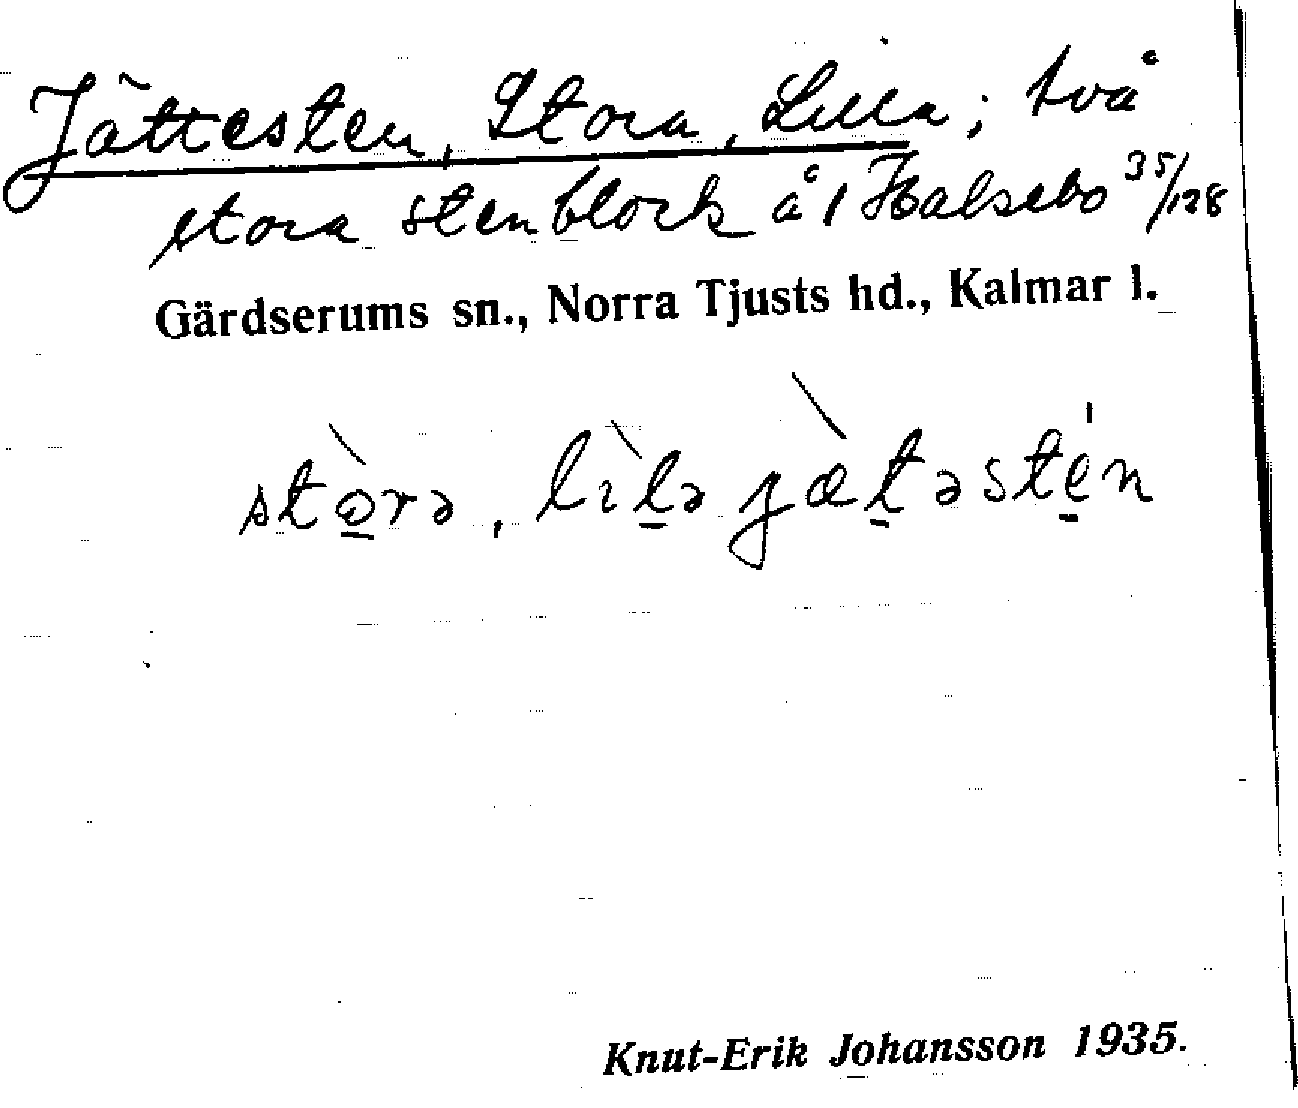 Jättesten, Stora, Lilla; två
stora stenblock å 1 Halsebo 35/128
Gärdserums sn., Norra Tjusts hd., Kalmar l.
stòrə, lìlə jæ̀təstén
Knut-Erik Johansson 1935.